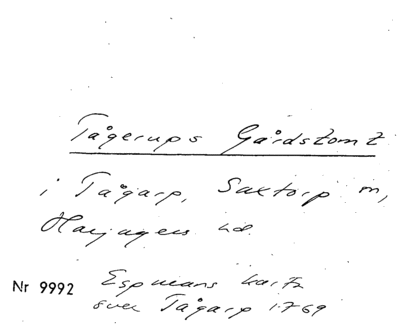 Tågerups Gårdstomt
i Tågarp, Saxtorp m,
Harjagers hd
Nr 9992 Espmans karta
över Tågarp 1769